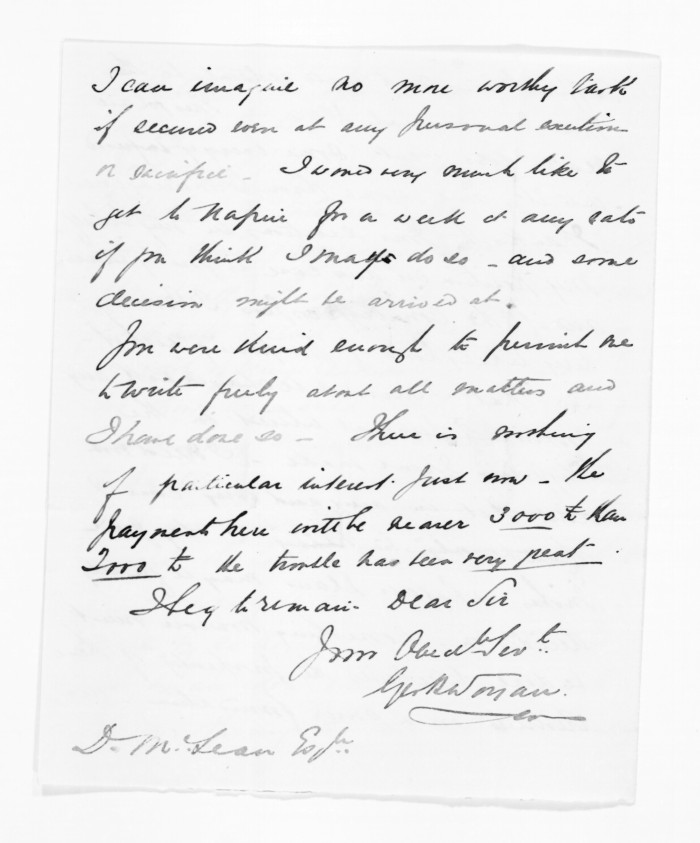 I can imagine no more worthy task
if secured even at any personal exertion
or sacrifice - I would very much like to
get to Napier for a week at any rate
if you think I may do so - and some
decision might be arrived at.
You were kind enough to permit me
to write freely about all matters and
I have done so - There is nothing
of particular interest just now - the
payments here will be nearer 3000 £ than
2000 £ the trouble has been very great.
I beg to remain - Dear Sir
Your Obedt Servt.
D. McLean Esqre